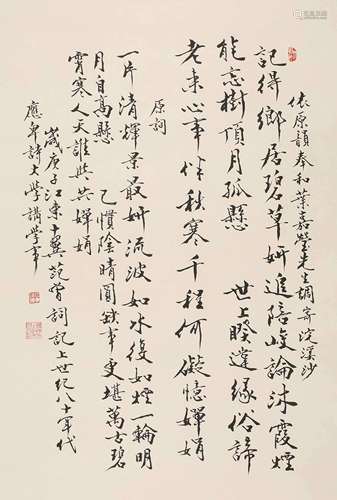 依原韻奉和葉嘉瑩先生調寄浣溪沙
記得鄉居碧草妍追陪峻論沐霞煙
能忘樹頂月孤懸　世上暌違緣俗諦
老來心事伴秋寒千程何礙憶嬋娟
原詞
一片清輝景最妍流波如水復如煙一輪明
月自高懸　已慣陰晴圓缺事更堪萬古碧
霄寒人天誰共共嬋娟
歲庚子江東十翼范曾詞記上世紀八十年代
應卑詩大學講學事